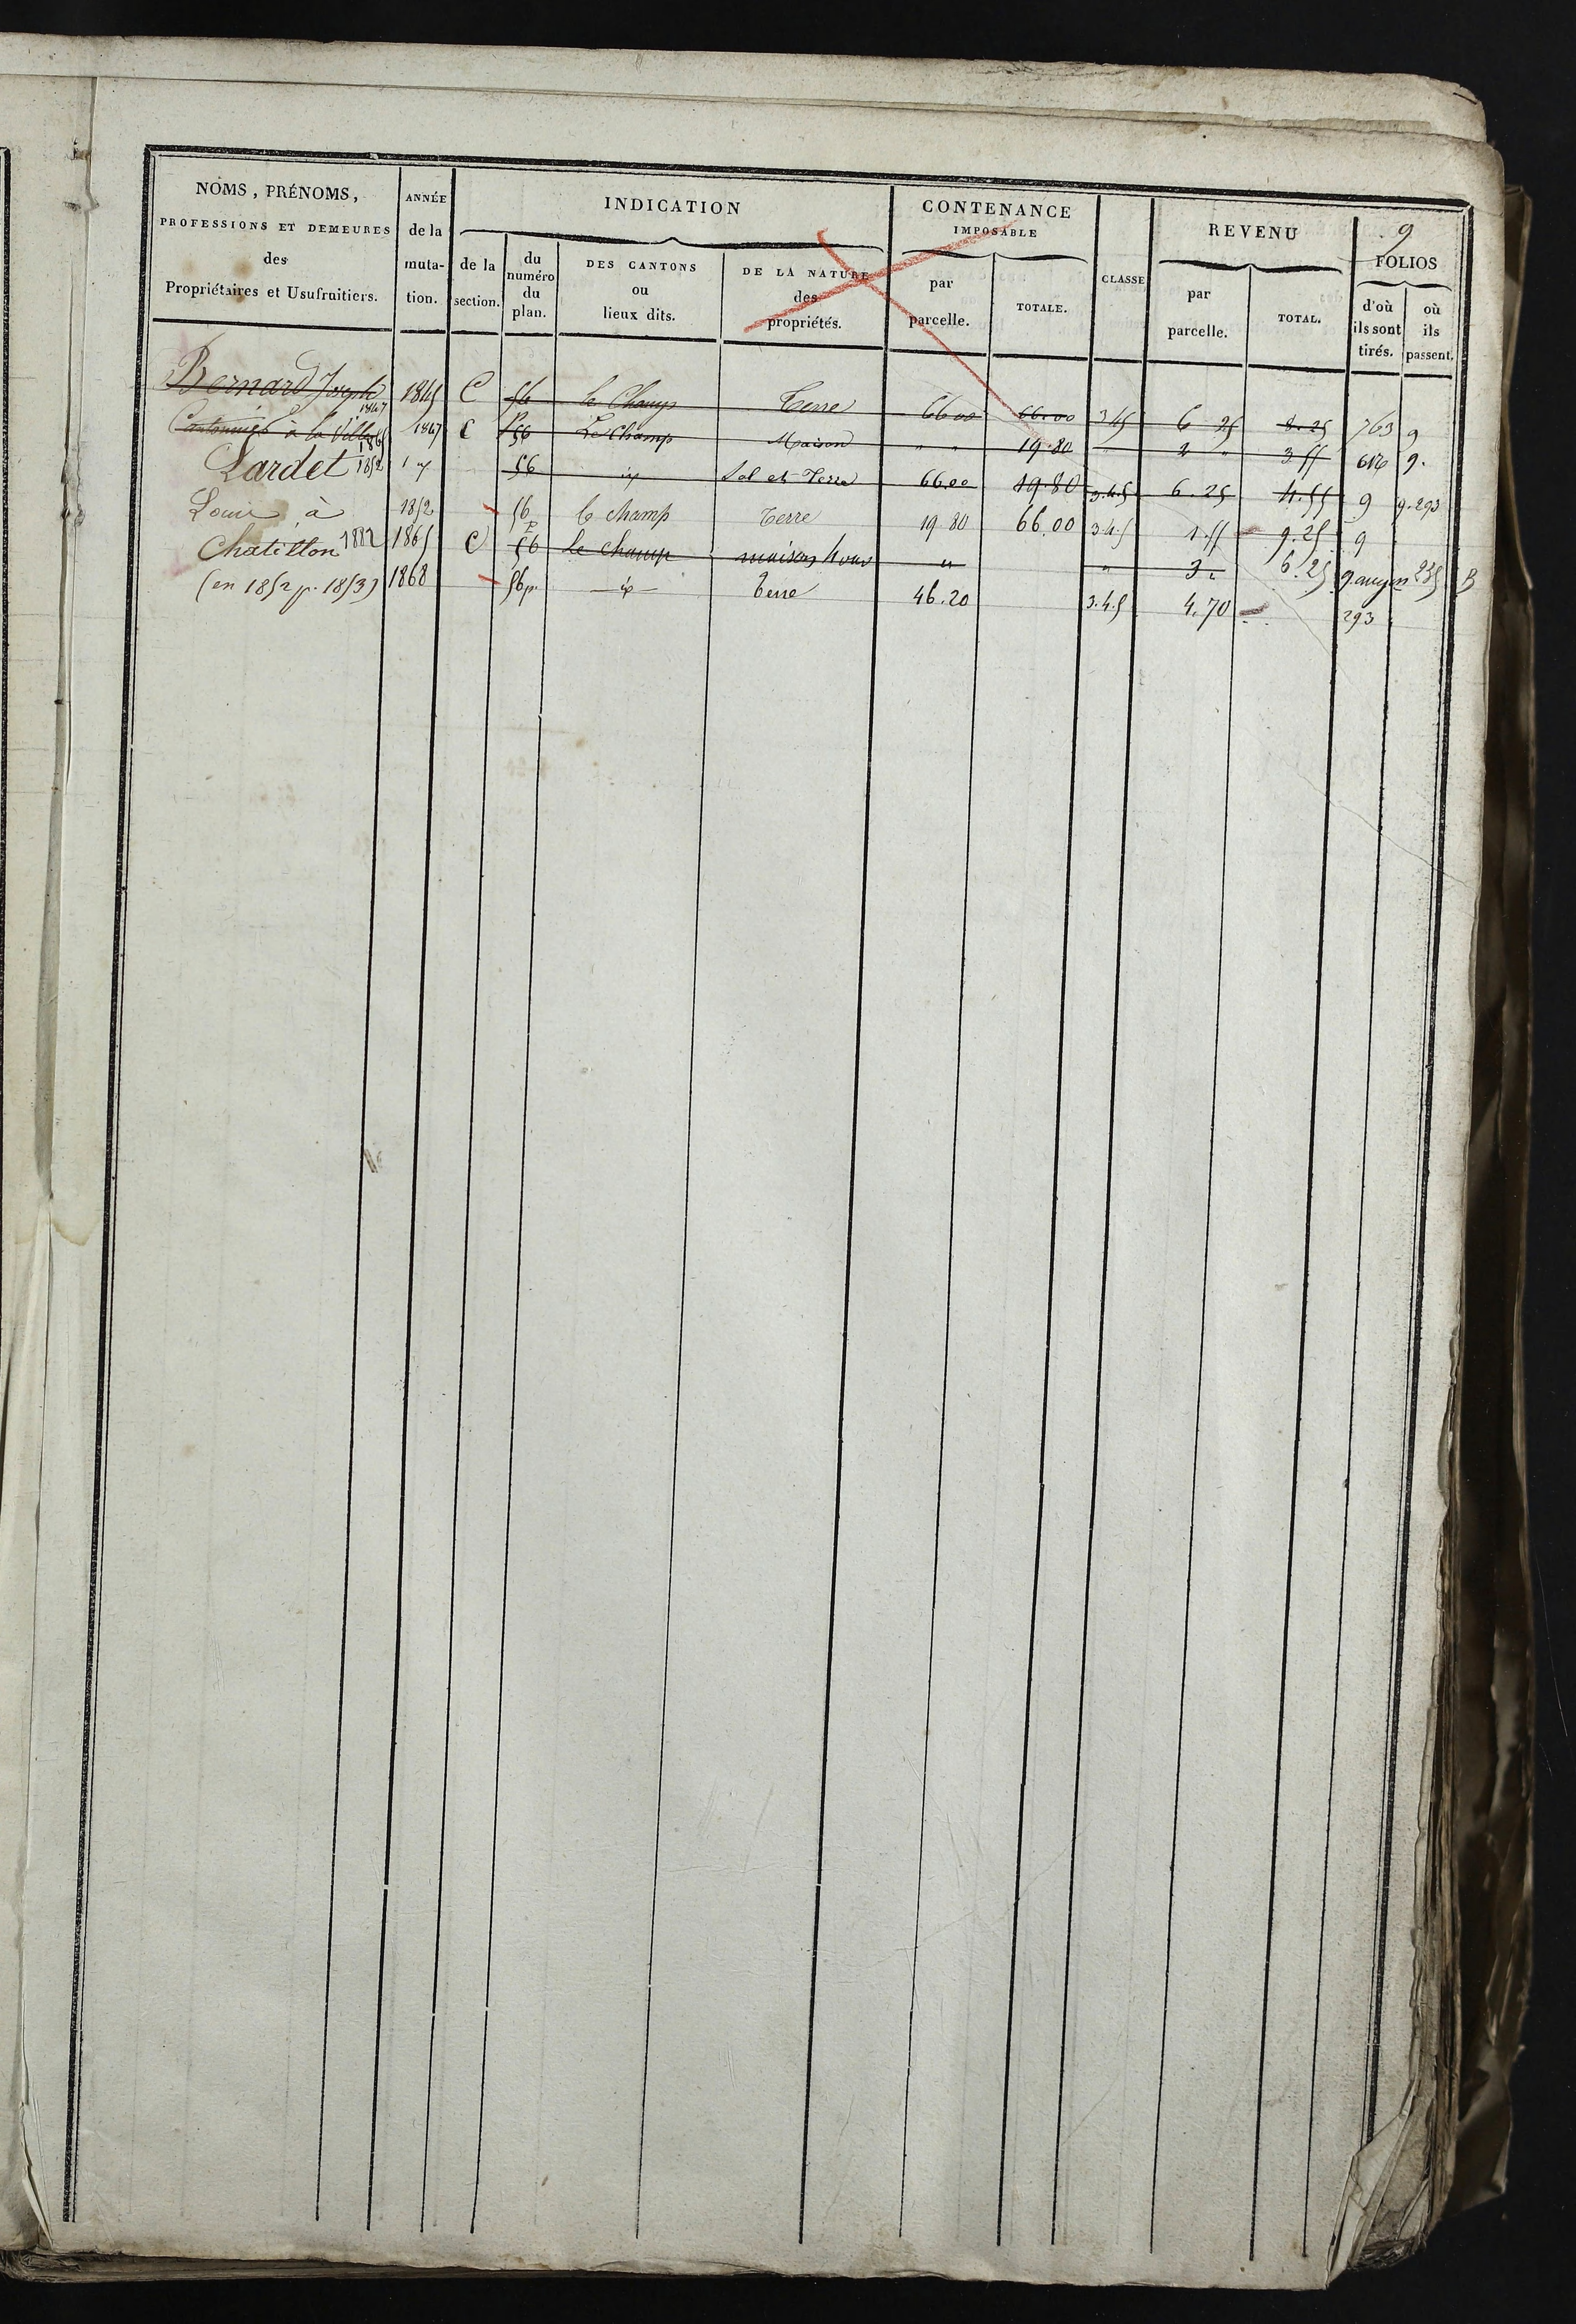 NOMS, PRÉNOMS,
PROFESSIONS ET DEMEURES
des
Propriétaires et Usufruitiers.
ANNÉE
de la
muta-
tion.
INDICATION
de la
section.
du
numéro
du
plan.
DES CANTONS
ou
lieux dits.
DE LA NATURE
des
propriétés.
CONTENANCE
IMPOSABLE
par
parcelle.
TOTALE.
CLASSE
REVENU
par
parcelle.
TOTAL.
9
FOLIOS
d'où
ils sont
tirés.
où
ils
passent.
Bernard Joseph 1845 C 56 le Champ Terre 66 00 66.00 345 6 25 8.25 763 9
1847
Cantonnier à la 1847 C P56 Le Champ Maison " " 19.80 " 2 " 3 55 9.
Lardet 1852 56 Sol et Terre 66.00 19.80 3.4.5 6.25 4.55 9 9.293
Louis à 1852 56 le champ Terre 19 80 66.00 3.4.5 1.55 9.25 9
Chatillon 1882 1865 C 56 le champ maison " " 3 " 6.25 235
(en 1852 p. 1853) 1868 56p. Terre 46.20 3.4.5 4.70 293